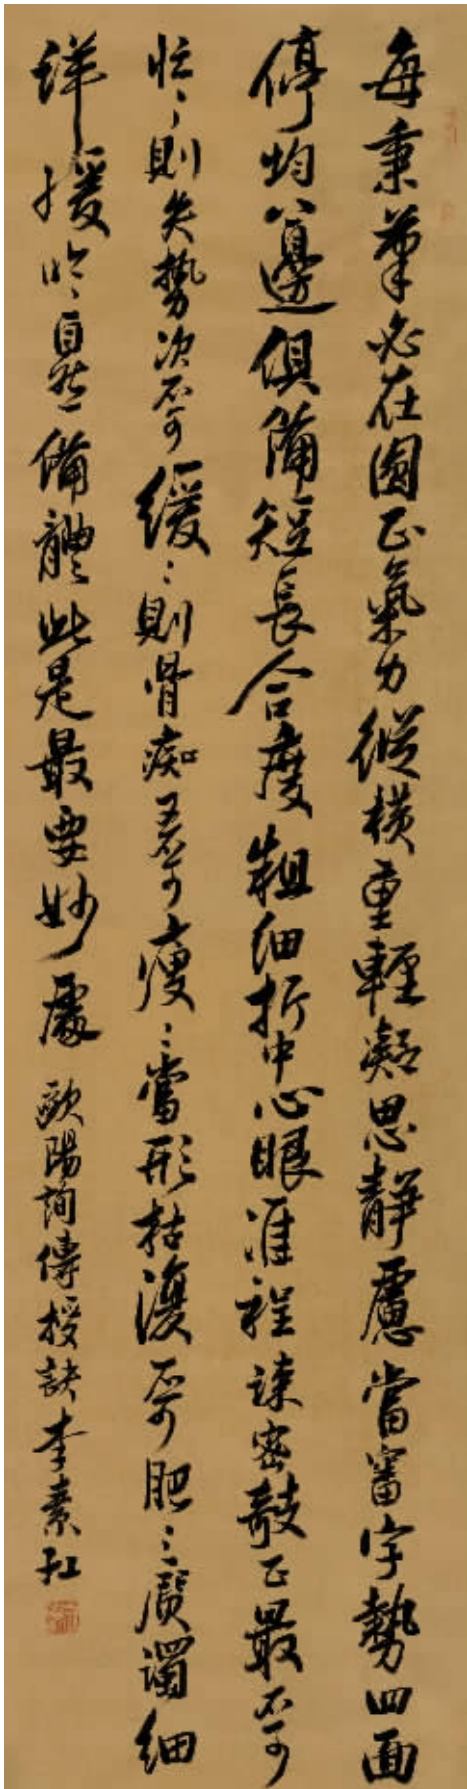 每秉筆必在圓正氣力縱橫重輕凝思靜慮當審字勢四面
停均八邊俱備短長合度粗細折中心眼准程疎密敧正最不可
忙〻則失勢次不可緩〻則骨癡又不可瘦〻當形枯復不可肥〻質濁細
詳緩臨〻自然備體此是最要妙處 歐陽詢傳授訣 李素